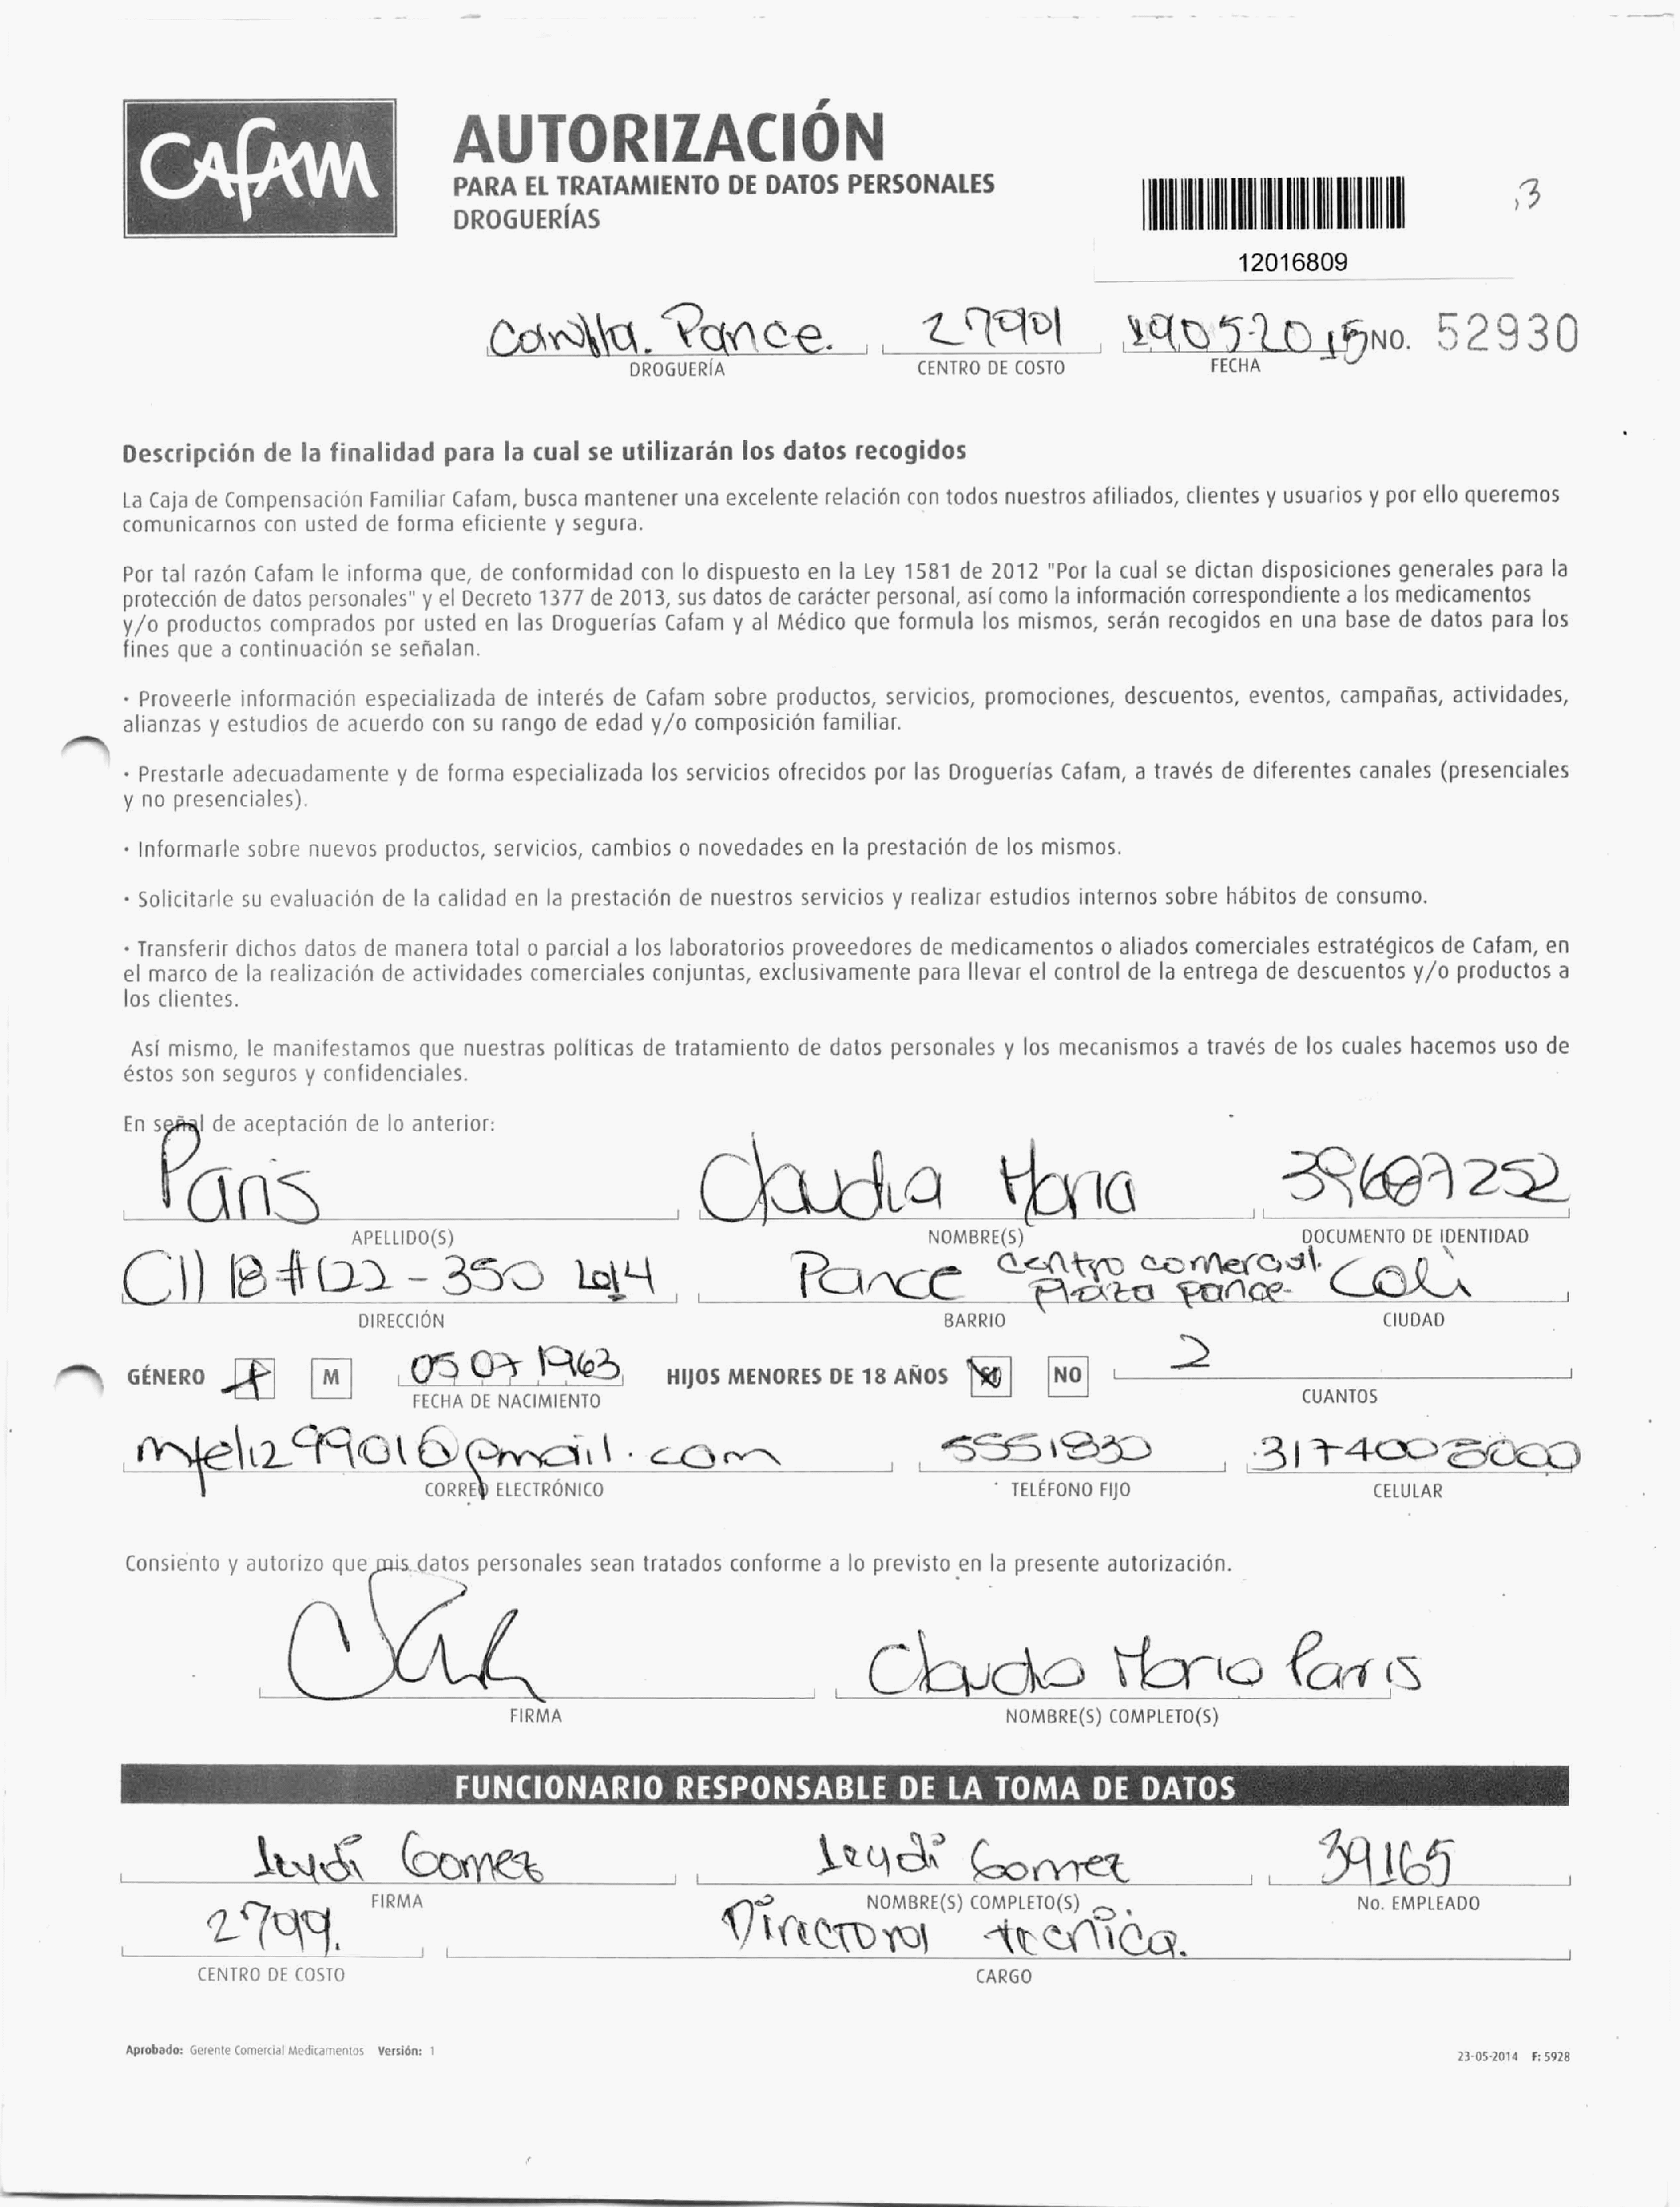 CAFAM
AUTORIZACIÓN
PARA EL TRATAMIENTO DE DATOS PERSONALES
DROGUERÍAS
12016809
3
Pance. 27901 19 05 2015 NO. 52930
DROGUERÍA CENTRO DE COSTO FECHA
Descripción de la finalidad para la cual se utilizarán los datos recogidos
La Caja de Compensación Familiar Cafam, busca mantener una excelente relación con todos nuestros afiliados, clientes y usuarios y por ello queremos
comunicarnos con usted de forma eficiente y segura.
Por tal razón Cafam le informa que, de conformidad con lo dispuesto en la Ley 1581 de 2012 "Por la cual se dictan disposiciones generales para la
protección de datos personales" y el Decreto 1377 de 2013, sus datos de carácter personal, así como la información correspondiente a los medicamentos
y/o productos comprados por usted en las Droguerías Cafam y al Médico que formula los mismos, serán recogidos en una base de datos para los
fines que a continuación se señalan.
· Proveerle información especializada de interés de Cafam sobre productos, servicios, promociones, descuentos, eventos, campañas, actividades,
alianzas y estudios de acuerdo con su rango de edad y/o composición familiar.
· Prestarle adecuadamente y de forma especializada los servicios ofrecidos por las Droguerías Cafam, a través de diferentes canales (presenciales
y no presenciales).
· Informarle sobre nuevos productos, servicios, cambios o novedades en la prestación de los mismos.
· Solicitarle su evaluación de la calidad en la prestación de nuestros servicios y realizar estudios internos sobre hábitos de consumo.
· Transferir dichos datos de manera total o parcial a los laboratorios proveedores de medicamentos o aliados comerciales estratégicos de Cafam, en
el marco de la realización de actividades comerciales conjuntas, exclusivamente para llevar el control de la entrega de descuentos y/o productos a
los clientes.
Así mismo, le manifestamos que nuestras políticas de tratamiento de datos personales y los mecanismos a través de los cuales hacemos uso de
éstos son seguros y confidenciales.
En señal de aceptación de lo anterior:
Paris Claudia Maria 39687252
APELLIDO(S) NOMBRE(S) DOCUMENTO DE IDENTIDAD
Cll 18 #122-350 Lo14 Pance centro comercial. Plaza pance. Cali
DIRECCIÓN BARRIO CIUDAD
GÉNERO F M 05 07 1963 HIJOS MENORES DE 18 AÑOS SI NO 2
FECHA DE NACIMIENTO CUANTOS
mfeli29901@gmail.com 5551830 3174008000
CORREO ELECTRÓNICO TELÉFONO FIJO CELULAR
Consiento y autorizo que mis datos personales sean tratados conforme a lo previsto en la presente autorización.
Claudia Maria Paris
FIRMA NOMBRE(S) COMPLETO(S)
FUNCIONARIO RESPONSABLE DE LA TOMA DE DATOS
Leydi Gomez Leydi Gomez 39165
FIRMA NOMBRE(S) COMPLETO(S) No. EMPLEADO
2799. Directora tecnica.
CENTRO DE COSTO CARGO
Aprobado: Gerente Comercial Medicamentos Versión: 1
23-05-2014 F: 5928